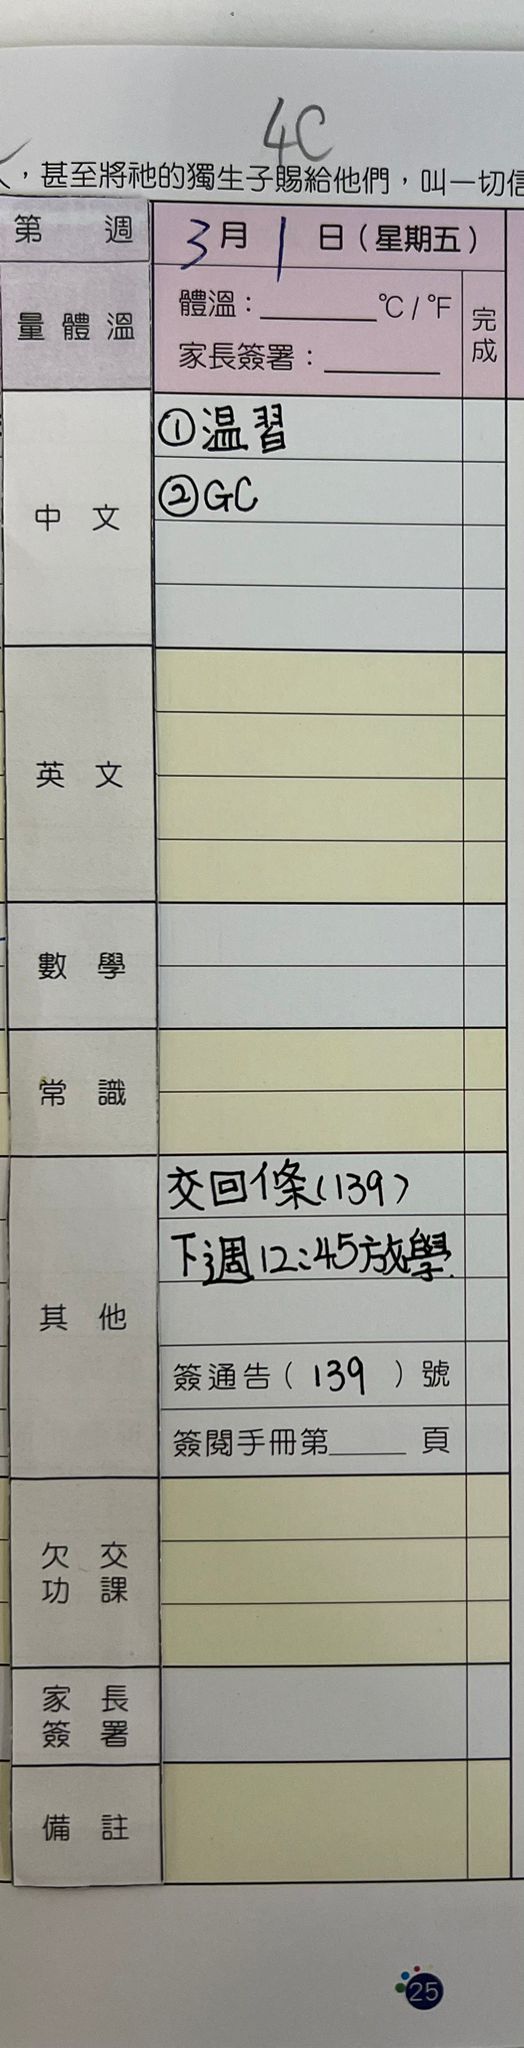 4C
，甚至將祂的獨生子賜給他們，叫一切信
第 週 3月1日（星期五）
量體溫 體溫：______°C / °F 完成
家長簽署：______
中文 ①温習
②GC
英文
數學
常識
其他 交回條(139)
下週12:45放學.
簽通告（ 139 ）號
簽閱手冊第____頁
欠交
功課
家長
簽署
備註
25